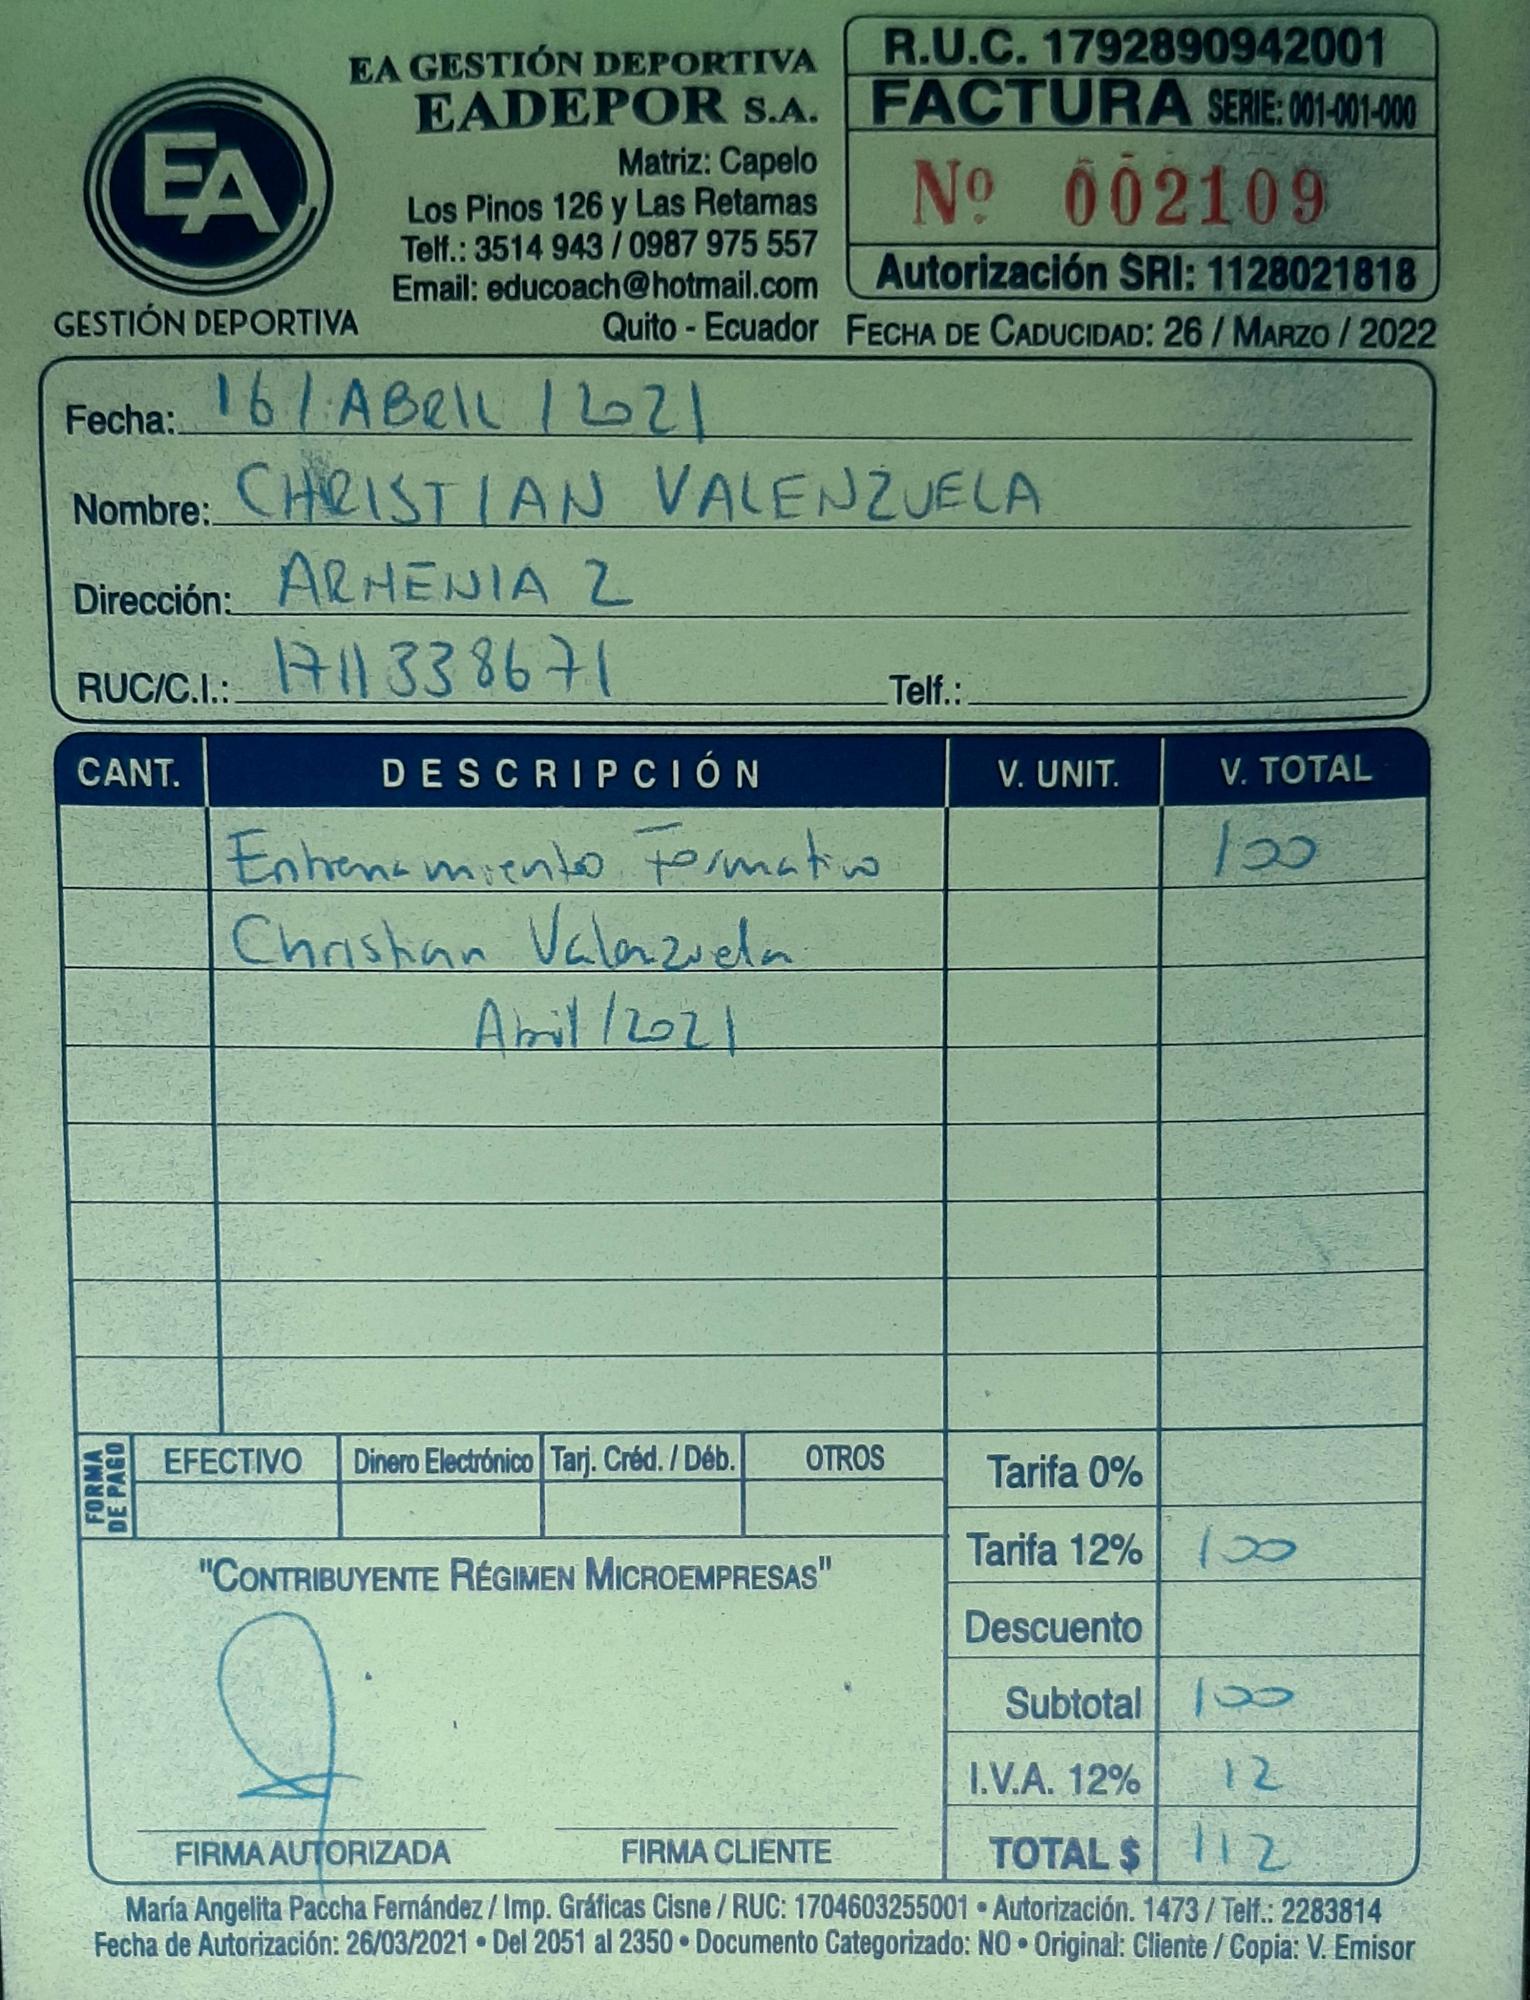 EA GESTIÓN DEPORTIVA
EADEPOR S.A.
Matriz: Capelo
Los Pinos 126 y Las Retamas
Telf.: 3514 943 / 0987 975 557
Email: educoach@hotmail.com
Quito - Ecuador
EA
GESTIÓN DEPORTIVA
R.U.C. 1792890942001
FACTURA SERIE: 001-001-000
Nº 002109
Autorización SRI: 1128021818
FECHA DE CADUCIDAD: 26 / MARZO / 2022
Fecha: 16 / ABRIL / 2021
Nombre: CHRISTIAN VALENZUELA
Dirección: ARMENIA 2
RUC/C.I.: 1711338671 Telf.:
CANT. DESCRIPCIÓN V. UNIT. V. TOTAL
Entrenamiento Formativo 100
Christian Valenzuela
Abril/2021
FORMA DE PAGO EFECTIVO Dinero Electrónico Tarj. Créd. / Déb. OTROS
Tarifa 0%
Tarifa 12% 100
Descuento
Subtotal 100
I.V.A. 12% 12
TOTAL $ 112
"CONTRIBUYENTE RÉGIMEN MICROEMPRESAS"
FIRMA AUTORIZADA FIRMA CLIENTE
María Angelita Paccha Fernández / Imp. Gráficas Cisne / RUC: 1704603255001 • Autorización. 1473 / Telf.: 2283814
Fecha de Autorización: 26/03/2021 • Del 2051 al 2350 • Documento Categorizado: NO • Original: Cliente / Copia: V. Emisor